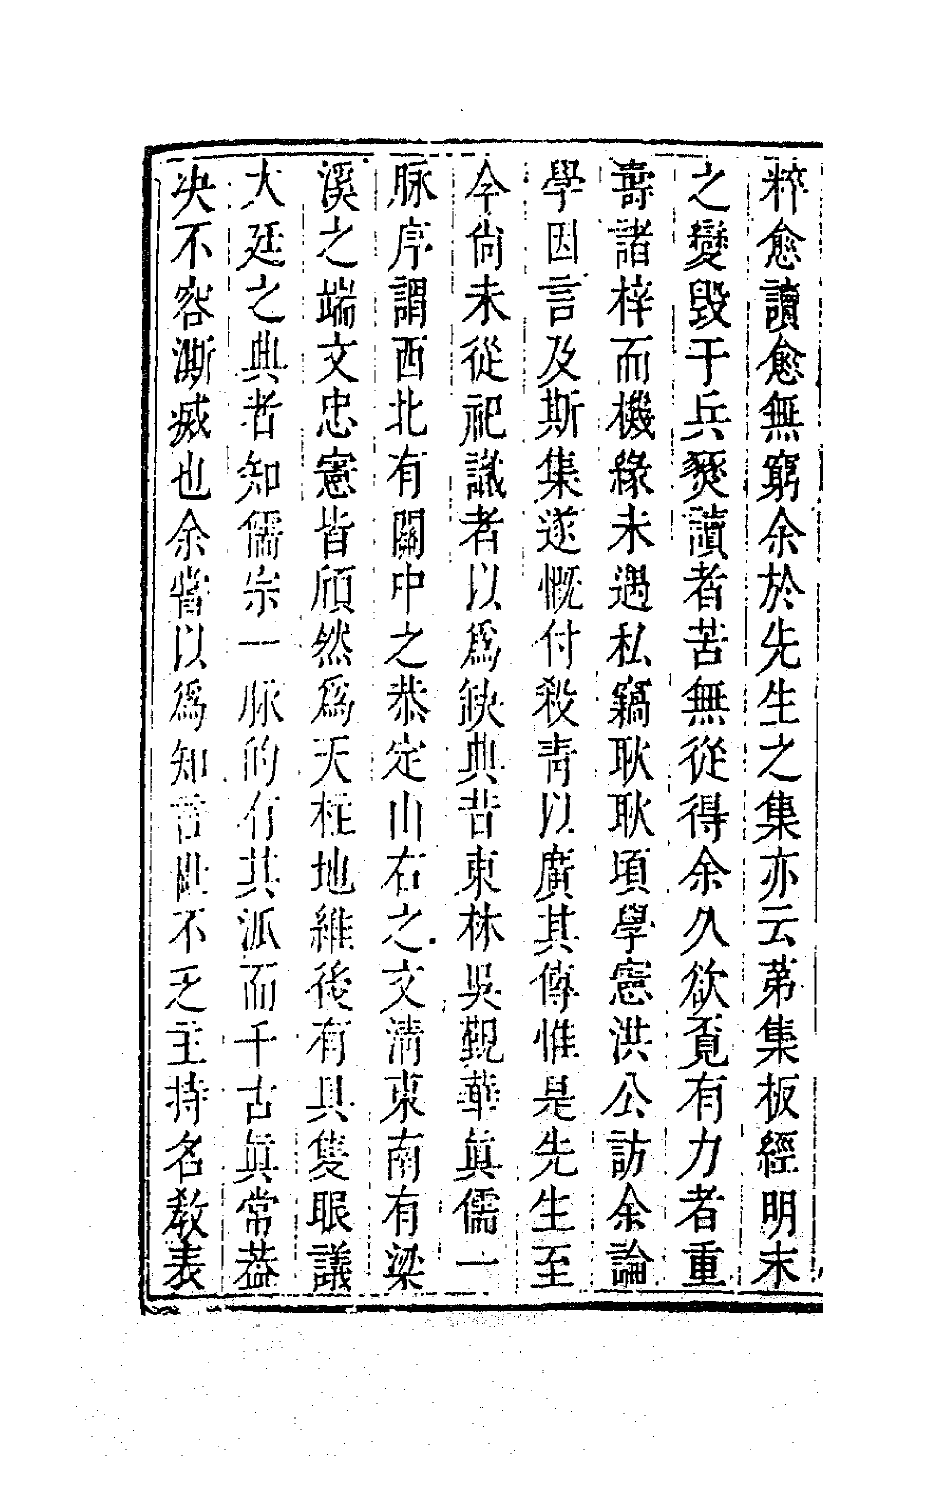 粹愈讀愈無窮余於先生之集亦云苐集板經明末
之變毀于兵燹讀者苦無從得余久欲覔有力者重
壽諸梓而機緣未遇私竊耿耿頃學憲洪公訪余論
學因言及斯集遂慨付殺青以廣其傳惟是先生至
今尙未從祀議者以爲缺典昔東林吳覲華眞儒一
脉序謂西北有關中之恭定山右之文清東南有梁
溪之端文忠憲皆頎然爲天柱地維後有具隻眼議
大廷之典者知儒宗一脈的有其派而千古眞常葢
决不容澌滅也余嘗以爲知言世不乏主持名教表